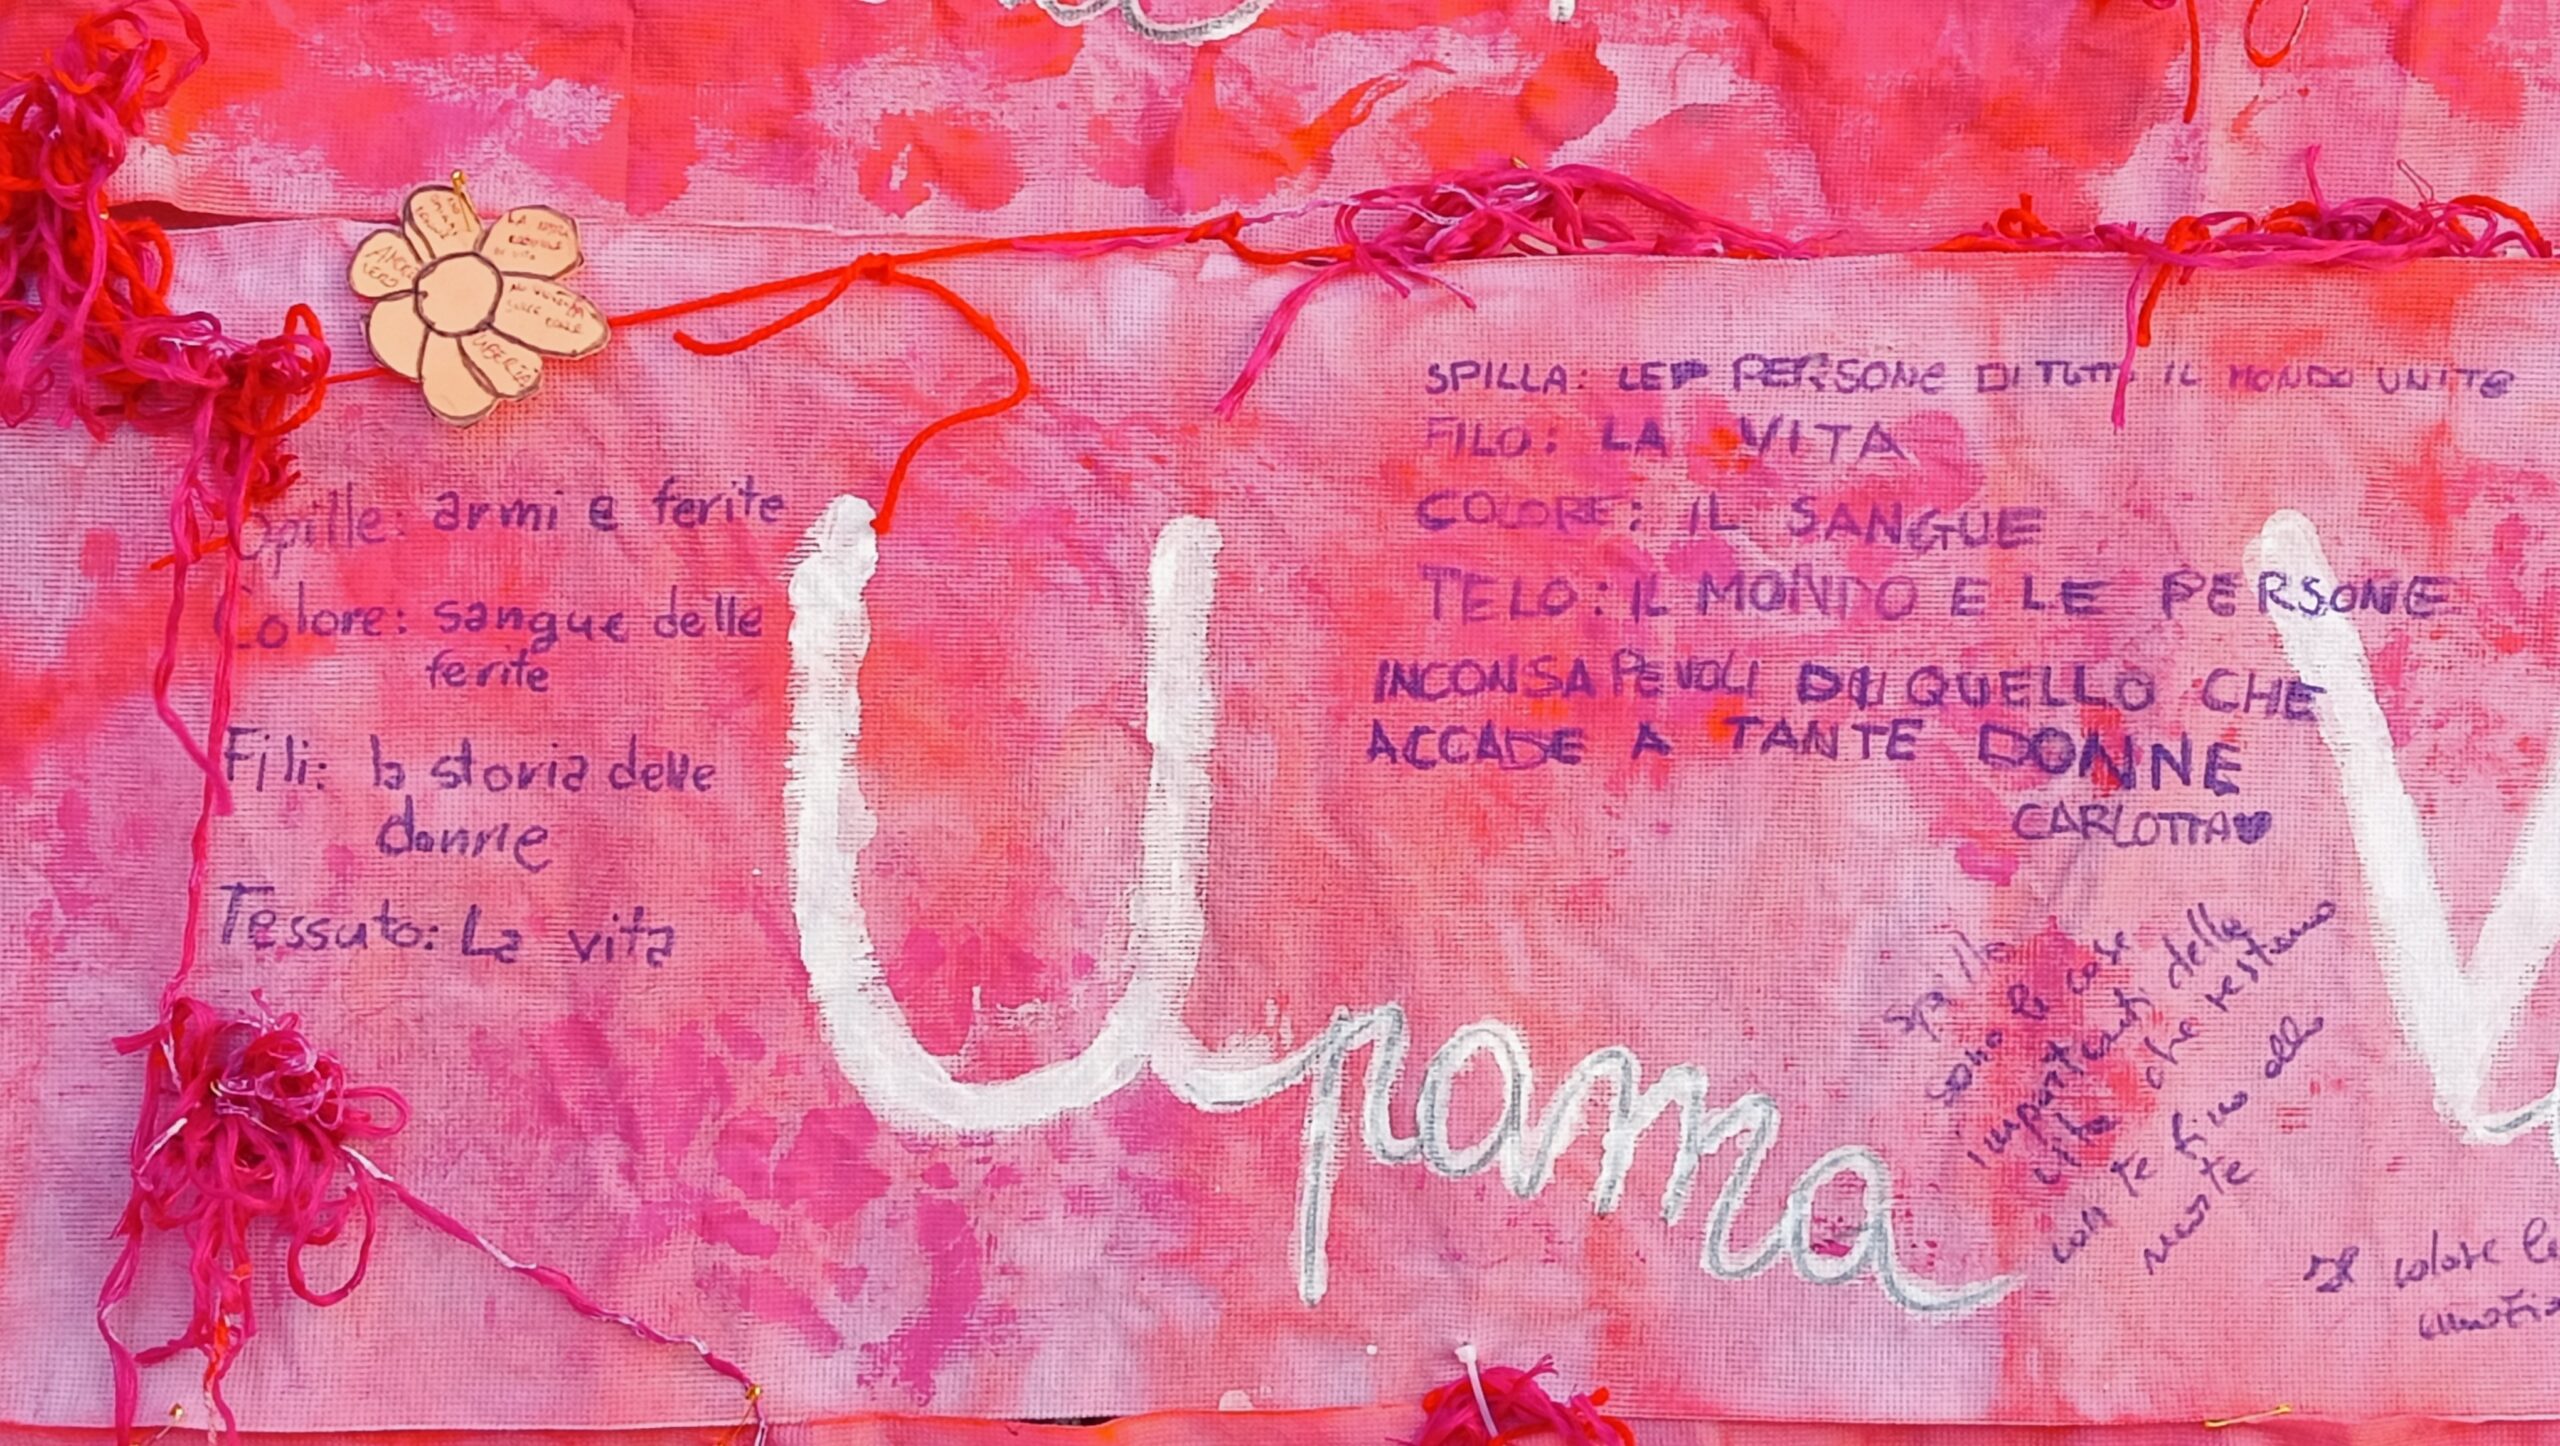 AMORE
VERO
LA
DI VITA
NO VIOLENZA
SULLE DONNE
LIBERTÀ
Spille: armi e ferite
Colore: sangue delle
ferite
Fili: la storia delle
donne
Tessuto: La vita
SPILLA: LE PERSONE DI TUTTO IL MONDO UNITE
FILO: LA VITA
COLORE: IL SANGUE
TELO: IL MONDO E LE PERSONE
INCONSAPEVOLI DI QUELLO CHE
ACCADE A TANTE DONNE
CARLOTTA♥
Upama
Spille
sono le cose
importanti della
vita che restano
con te fino alla
morte
Il colore le
V